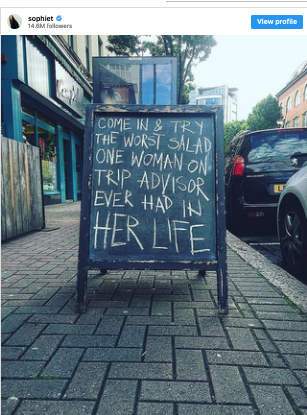 sophiet
14.6M followers
View profile
COME IN & TRY
THE WORST SALAD
ONE WOMAN ON
TRIP ADVISOR
EVER HAD IN
HER LIFE